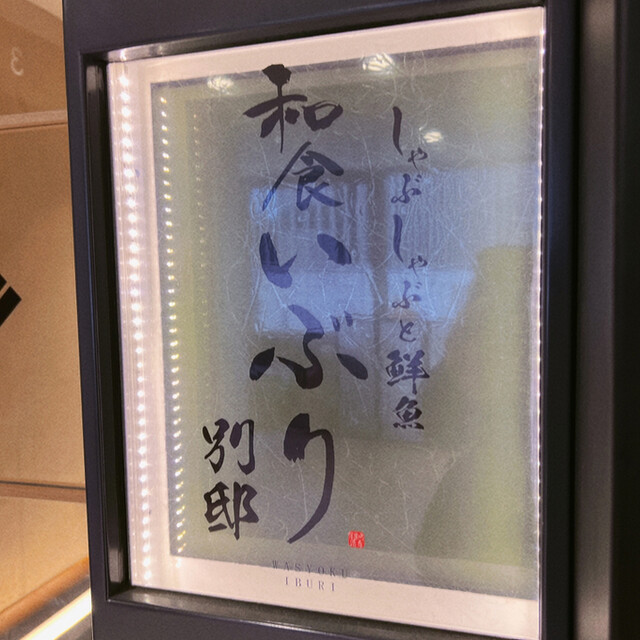 しゃぶしゃぶと鮮魚
和食いぶり
別邸
WASYOKU
IBURI
3